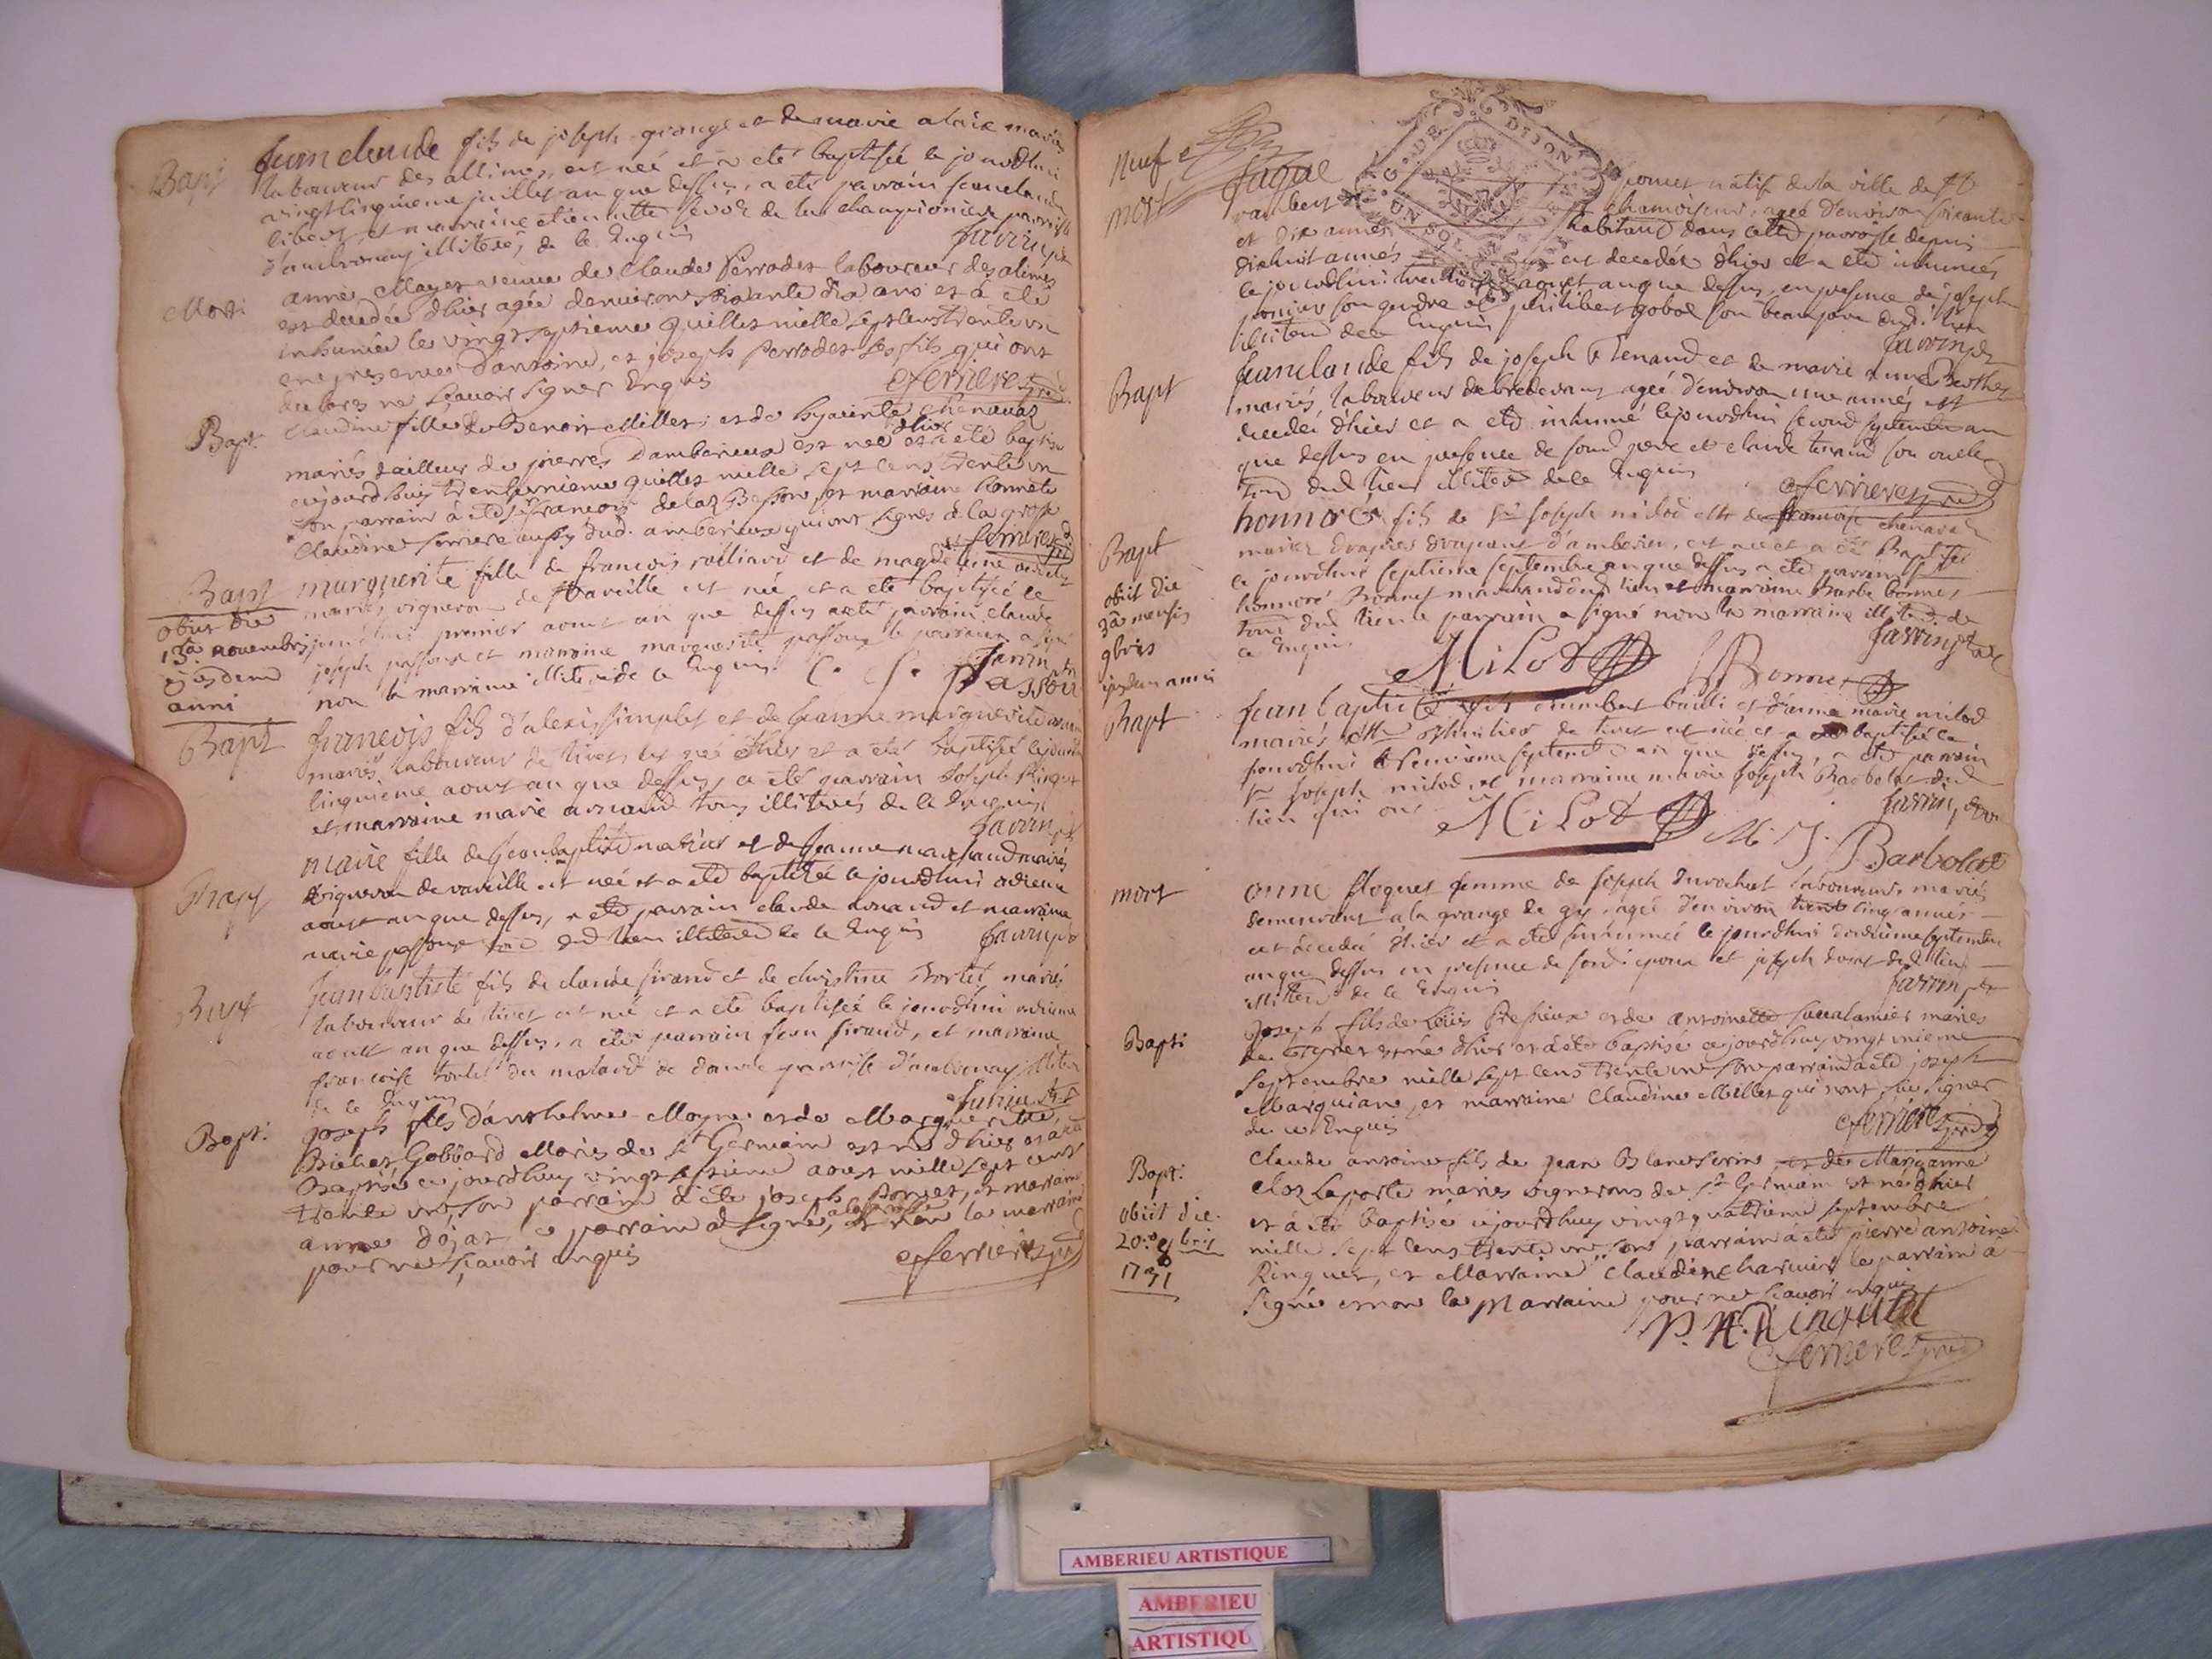 Bapt
Jean claude fils de joseph grange et de marie alaix mariés
laboureur des allimes, est née et a eté baptisée le jourdhui
vingtcinquieme juillet an que dessus, a eté parrain jeanclaude
libert, et marraine etiennette de la championiere parroisse
d'ambronay illiterés de ce Enquis
Favrin
Mort.
anne Mayet veuve de Claude Perrodet laboureur des alimes
est decedée d'hier agée d'environ soixante dix ans et à eté
inhumée le vingt septieme Juillet mille sept cens trente un
en presence d'antoine, et joseph Perrodet ses fils qui ont
declarez ne sçavoir signer Enquis
ferrier
Bapt.
Claudine fille de Benoit Millet, et de hyacinte chenavaz
mariés tailleur de pierres d'amberieux est née dhier et a eté baptisé
aujourdhuy trente unieme Juillet mille sept cens trente un
son parrain à eté sr françois delaz Besson, et marraine honnete
Claudine ferriere aussy dud. amberieux qui ont signés à la grosse
ferrier
Bapt
obiit die
13a novembris
ejusdem
anni
marguerite fille de francois railliard et de magdelaine
mariés vigneron de Vareille est né et a eté baptisée le
jourdhui premier aoust an que dessus a eté parrain claude
joseph passoux et marraine marguerite passoux le parrain a signé
non la marraine illiterée de ce Enquis. C. J. Passoux
Favrin
Bapt
francois fils d'alexis simplet et de jeanne marguerite
mariés laboureur de tiret est né d'hier et a eté baptisée le jourdhui
cinquieme aoust an que dessus, a eté parrain Joseph Ringuet
et marraine marie arnaud tous illiterés de ce Enquis,
Favrin
Bapt
marie fille de Jean baptiste mathieu et de jeanne marchand mariés
vigneron de vareille est née et a eté baptisée le jourdhui
aoust an que dessus, a eté parrain claude et marraine
marie passoux tous dud lieu illiterés de ce Enquis
Favrin
Bapt
Jean baptiste fils de claude sirand et de christine Tortel mariés
laboureur de tiret est né et a eté baptisée le jourdhui
aoust an que dessus, a eté parrain jean sirand, et marraine
francoise Tortel du molard de parroisse d'ambronay illiterés
de ce Enquis
Favrin
Bapt.
Joseph fils d'anthelme Moyne et de Marguerite
Brichet Gobbard Mariés de st Germain est né d'hier et a eté
Baptisé ce jourdhuy vingt septieme aoust mille sept cent
trente un, son parrain à eté joseph Ponset, et marraine
anne dojat ce parrain a signé, à la grosse et non la marraine
pour ne sçavoir enquis
ferrier
Neuf
GE DE DIJON
UN SOL
mort
Jaque poncet natif de la ville de st
rambert chamoiseur, agée d'environ soixante
et dix annés habitant dans cette parroisse depuis
dixhuit annés est decedés d'hier et a eté inhumés
le jourdhui aoust an que dessus, en presence de joseph
son gendre et philibert gobet son beaupere dud. lieu
illiterés de ce Enquis
Favrin
Bapt
Jeanclaude fils de joseph Tenand et de marie anne Berthet
mariés laboureur de bredevent agée d'environ une année est
decedé d'hier et a eté inhumé le jourdhui second septembre an
que dessus en presence de sond pere et claude tenand son oncle
tous dud lieu illiterés de ce Enquis
ferrier
Bapt
obiit die
3a mensis
9bris
ejusdem anni
honnoré fils de sr Joseph milod et de francoise chenavaz
mariez drapier drapant d'amberieu, est née et a eté Baptisé
le jourdhui septieme septembre an que dessus a eté parrain sr
honnoré Bonnet marchand dud lieu et marraine Barbe bonnet
tous dud lieu le parrain a signé non la marraine illiterée de
ce Enquis
Favrin
Milod Bonnet
Bapt
Jean baptiste fils d'humbert bailli et d'anne marie milod
mariés de tiret est né et a eté baptisé ce
jourdhui neuvieme septembre an que dessus, a eté parrain
sr Joseph milod, et marraine marie joseph Barbolat dud
lieu qui ont
Favrin
Milod M. J. Barbolat
mort
anne floquet femme de joseph Durochat laboureur mariés
demeurant a la grange de gy, agée d'environ cinq annés
est decedée d'hier et a eté inhumée le jourdhui septembre
an que dessus en presence de sond. epoux et joseph dud lieu
illiterés de ce Enquis
Favrin
Bapti
Joseph fils de Loüis Pressieux et de antoinette mariés
de est né d'hier et à eté baptisé ce jourdhuy vingt unieme
septembre mille sept cens trente un son parrain à eté joseph
Marquiand, et marraine Claudine Millet qui n'ont sçu signer
de ce Enquis
ferrier
Bapt.
obiit die.
20a 8bris
1731
Claude antoine fils de jean Blanc ferrier et de Marianne
Clos Laporte mariés vignerons de st Germain est né d'hier
et à eté baptisé ce jourdhuy vingt quatrieme septembre
mille sept cens trente un, son parrain à eté pierre antoine
Ringuet, et Marraine Claudine le parrain a
signé et non la Marraine pour ne sçavoir enquis
P. A. Ringuet
ferrier
AMBERIEU ARTISTIQUE
AMBERIEU
ARTISTIQU